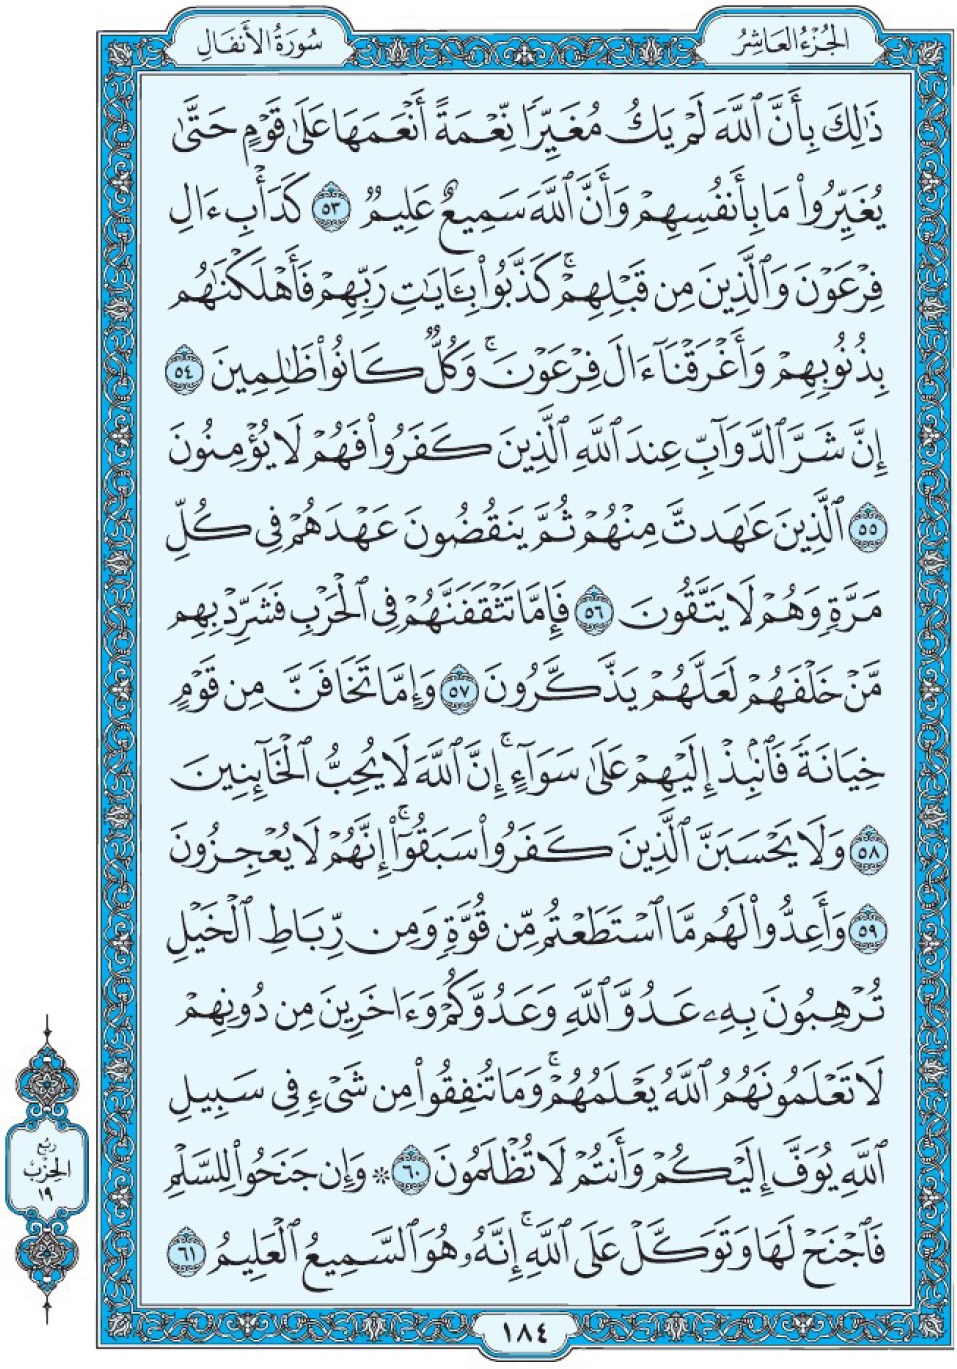 الجُزْءُ العَاشِرُ
سُورَةُ الأَنفَالِ
ذَٰلِكَ بِأَنَّ ٱللَّهَ لَمْ يَكُ مُغَيِّرٗا نِّعْمَةً أَنْعَمَهَا عَلَىٰ قَوْمٍ حَتَّىٰ
يُغَيِّرُواْ مَا بِأَنفُسِهِمْ وَأَنَّ ٱللَّهَ سَمِيعٌ عَلِيمٞ ٥٣ كَدَأْبِ ءَالِ
فِرْعَوْنَ وَٱلَّذِينَ مِن قَبْلِهِمْۚ كَذَّبُواْ بِـَٔايَٰتِ رَبِّهِمْ فَأَهْلَكْنَٰهُم
بِذُنُوبِهِمْ وَأَغْرَقْنَآ ءَالَ فِرْعَوْنَۚ وَكُلّٞ كَانُواْ ظَٰلِمِينَ ٥٤
إِنَّ شَرَّ ٱلدَّوَآبِّ عِندَ ٱللَّهِ ٱلَّذِينَ كَفَرُواْ فَهُمْ لَا يُؤْمِنُونَ
٥٥ ٱلَّذِينَ عَٰهَدتَّ مِنْهُمْ ثُمَّ يَنقُضُونَ عَهْدَهُمْ فِي كُلِّ
مَرَّةٖ وَهُمْ لَا يَتَّقُونَ ٥٦ فَإِمَّا تَثْقَفَنَّهُمْ فِي ٱلْحَرْبِ فَشَرِّدْ بِهِم
مَّنْ خَلْفَهُمْ لَعَلَّهُمْ يَذَّكَّرُونَ ٥٧ وَإِمَّا تَخَافَنَّ مِن قَوْمٍ
خِيَانَةٗ فَٱنۢبِذْ إِلَيْهِمْ عَلَىٰ سَوَآءٍۚ إِنَّ ٱللَّهَ لَا يُحِبُّ ٱلْخَآئِنِينَ
٥٨ وَلَا يَحْسَبَنَّ ٱلَّذِينَ كَفَرُواْ سَبَقُوٓاْۚ إِنَّهُمْ لَا يُعْجِزُونَ
٥٩ وَأَعِدُّواْ لَهُم مَّا ٱسْتَطَعْتُم مِّن قُوَّةٖ وَمِن رِّبَاطِ ٱلْخَيْلِ
تُرْهِبُونَ بِهِۦ عَدُوَّ ٱللَّهِ وَعَدُوَّكُمْ وَءَاخَرِينَ مِن دُونِهِمْ
لَا تَعْلَمُونَهُمُ ٱللَّهُ يَعْلَمُهُمْۚ وَمَا تُنفِقُواْ مِن شَيْءٖ فِي سَبِيلِ
ٱللَّهِ يُوَفَّ إِلَيْكُمْ وَأَنتُمْ لَا تُظْلَمُونَ ٦٠ ۞ وَإِن جَنَحُواْ لِلسَّلْمِ
فَٱجْنَحْ لَهَا وَتَوَكَّلْ عَلَى ٱللَّهِۚ إِنَّهُۥ هُوَ ٱلسَّمِيعُ ٱلْعَلِيمُ ٦١
رُبْع
الحِزْب
١٩
١٨٤